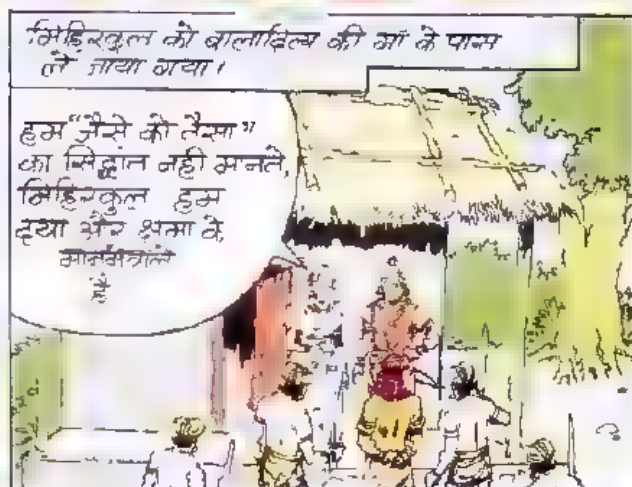 मिहिरकुल को बालादित्य की माँ के पास
ले जाया गया।
हम "जैसे को तैसा"
का सिद्धांत नही मानते,
मिहिरकुल हम
दया और क्षमा के
माननेवाले
है